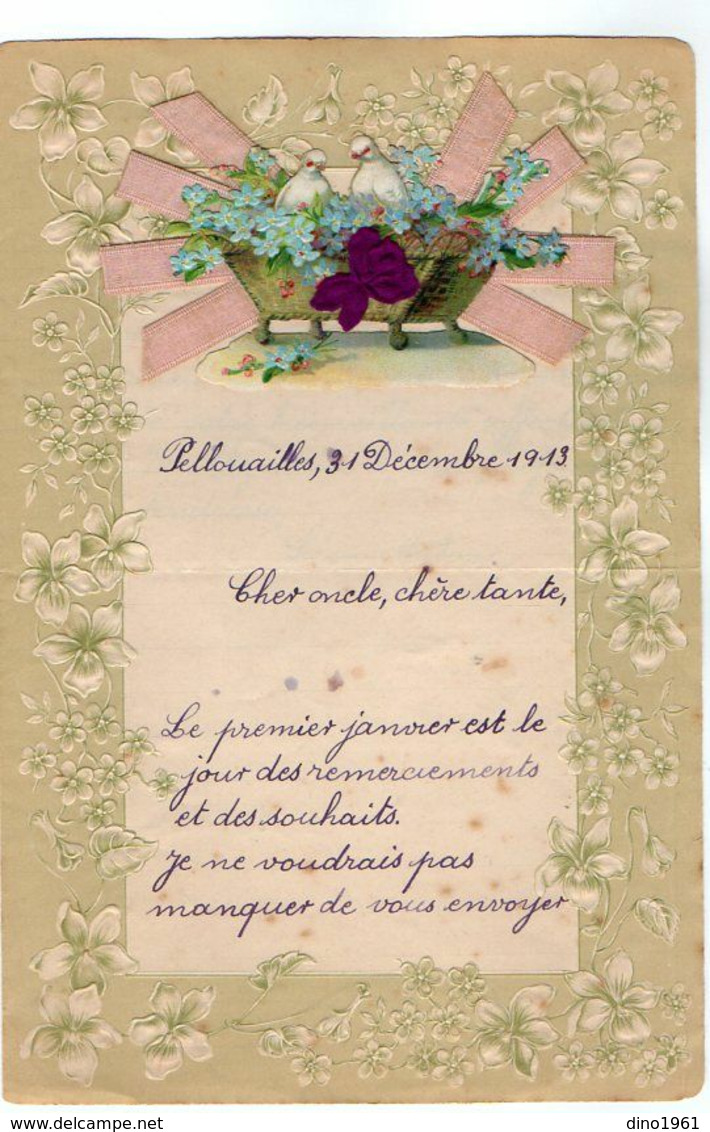 Pellouailles, 31 Décembre 1913
Cher oncle, chère tante,
Le premier janvier est le
jour des remerciements
et des souhaits.
Je ne voudrais pas
manquer de vous envoyer
dino1961